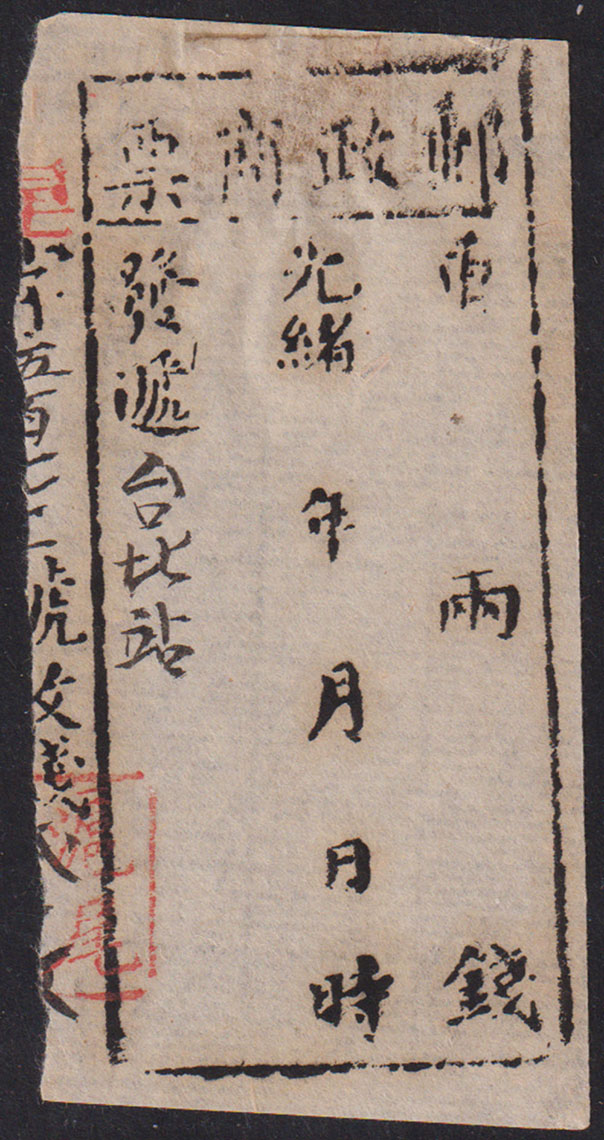 郵政商票
重 兩 錢
光緒 年 月 日 時
發遞台北站
字五百 號